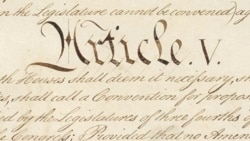 n the Legislature cannot be convened) ag
Article. V.
th Houses shall deem it necessary, s
s, shall call a Convention for propos
d by the Legislatures of three fourths of
Congress; Provided that no Amen